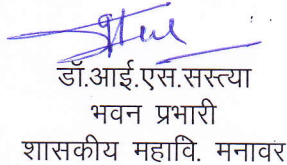 डॉ.आई.एस.सस्त्या
भवन प्रभारी
शासकीय महावि. मनावर